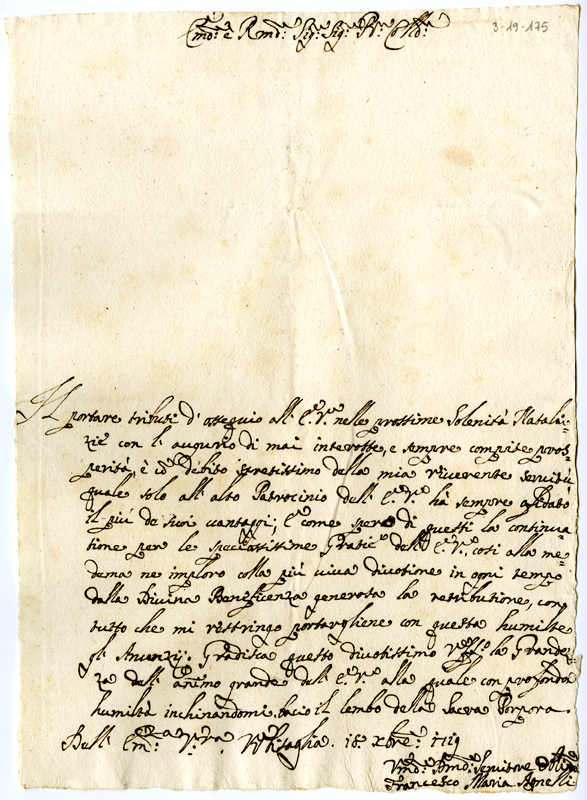 Em.o e Rmd.o Sig.r Sig.r P.rn Coll.mo
3-19-175
Il portare tributi d'ossequio all'E.a V.a nelle prossime Solenità Natali=
zie con l'augurio di mai interotte, e sempre compite pros=
perità, è debito strettissimo della mia riverente servitù
quale solo all'alto Patrocinio dell'E.a V.a hà sempre afidato
il più de suoi vantaggi; E come spero di questi la continua=
tione per le specialissime Gratie dell'E.a V.a, così alla me=
dema ne imploro colla più viva divotione in ogni tempo
dalla Divina Beneficenza generosa la retributione, con
tutto che mi restringo portargliene con questa humile
gl'Anunzij. Gradisca questo divotissimo la Grandez=
za dell'animo grande dell'E.a V.a alla quale con profonda
humiltà inchinandomi, bacio il lembo della Sacra Porpora.
Dell' Em.za V.ra 18. Xbre. 1719
Vmd.o Servitore
Francesco Maria Agnelli